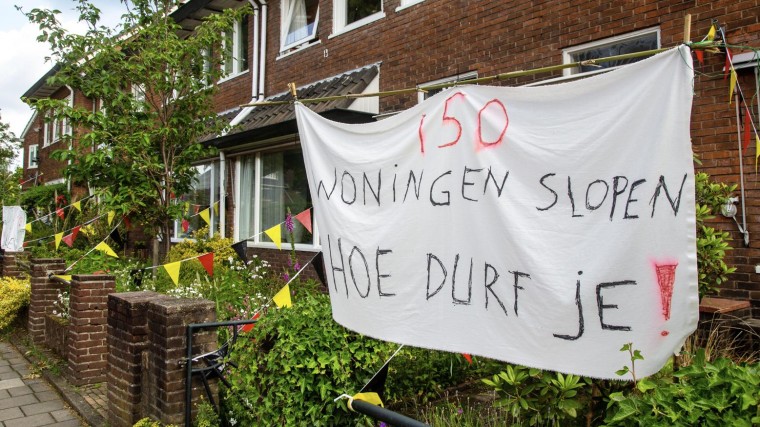 150
WONINGEN SLOPEN,
HOE DURF JE!